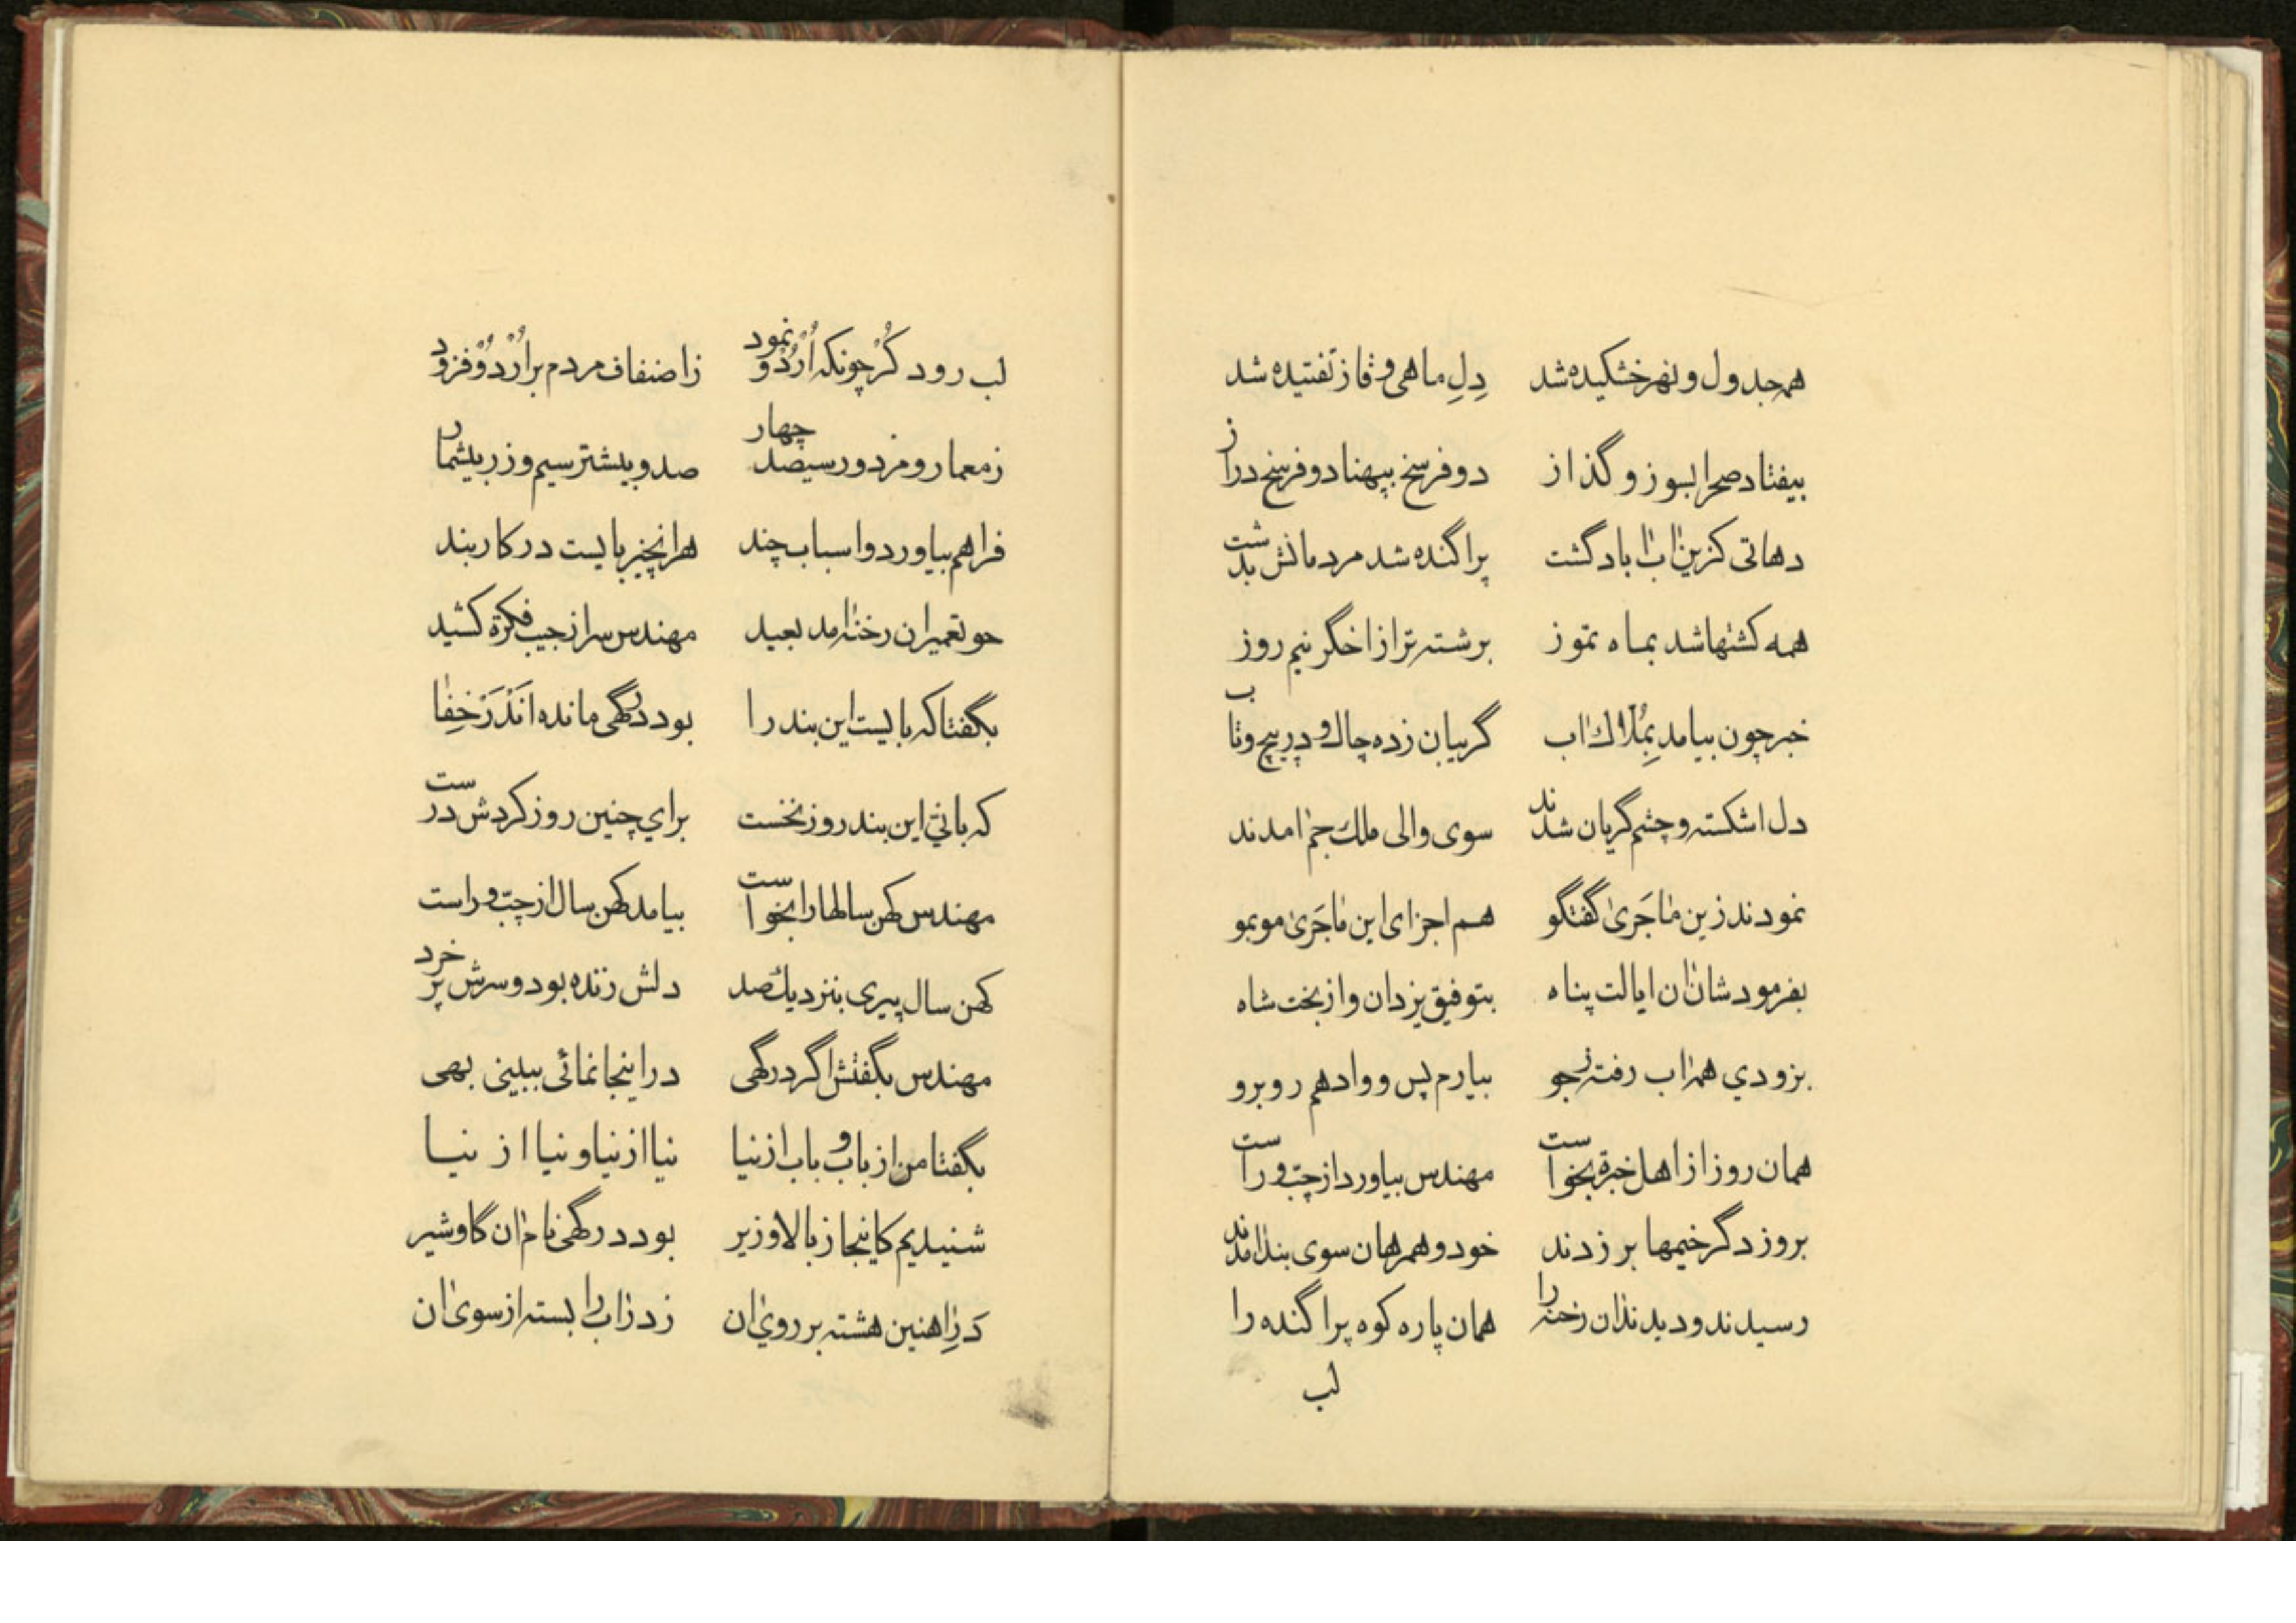 همه جدول و نهر خشکیده شد دِلِ ماهی و قاز تفتیده شد
بیفتاد صحرا بسوز و گذاز دو فرسخ بپهنا دو فرسخ دراز
دهاتی کزین اب اباد گشت پراکنده شد مردمانش بدشت
همه کشتها شد بماه تموز برشته تراز اخگر نیم روز
خبر چون بیامد بِمُلّاك اب گریبان زده چاك و در پیچ و تاب
دل اشکسته و چشم گریان شدند سوی والی ملك جم امدند
نمودند زین ماجَریٰ گفتگو هم اجزای این ماجَریٰ موبمو
بفرمود شان ان ایالت پناه بتوفیق یزدان و از بخت شاه
بزودي همه اب رفته زجو بیارم پس و وادهم روبرو
همان روز از اهل خبرة بخواست مهندس بیاورد از چپ و راست
بروز دگر خیمها بر زدند خود و همرهان سوی بند امدند
رسیدند و دیدند ان رخنه را همان پاره کوه پراکنده را
لب
لب رود کُرْ چونکه اُرْدُو نمود زاصناف مردم براُرْدُوْ فزود
زمعمار و مزدور سیصد چهار صد و بیشتر سیم و زر بیشمار
فراهم بیاورد و اسباب چند هرانچیز بایست در کار بند
چو تعمیر ان رخنه امد بعید مهندس سر از جیب فکرة کشید
بگفتا که بایست این بند را بود درگهی مانده انْدَرْ خِفا
که بانیّ این بند روز نخست برای چنین روز کردش درست
مهندس کهن سالها را بخواست بیامد کهن سال از چپ و راست
کهن سال پیری بنزدیك صد دلش زنده بود و سرش پر خرد
مهندس بگفتش اگر درگهی دراینجا نمائی ببینی بهی
بگفتا من از باب و باب از نیا نیا از نیا و نیا از نیا
شنیدیم کاینجا ز بالا و زیر بود درگهی نام ان گاوشیر
دَرِ اهنین هشته بر روی ان زدر اب را بسته از سوی ان